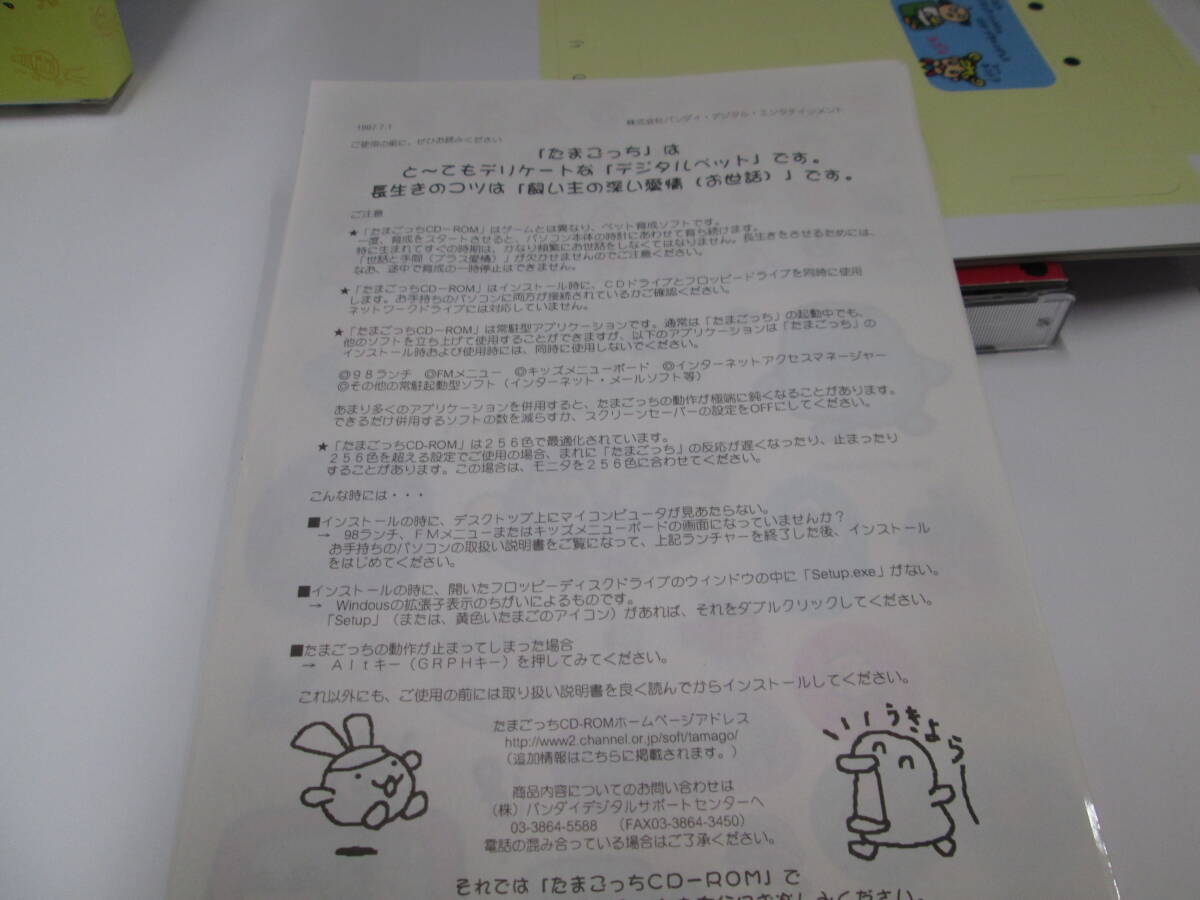 1997.7.1
株式会社バンダイ・デジタル・エンタテインメント
ご使用の前に、ぜひお読みください
「たまごっち」は
と〜てもデリケートな「デジタルペット」です。
長生きのコツは「飼い主の深い愛情（お世話）」です。
ご注意
★「たまごっちCD−ROM」はゲームとは異なり、ペット育成ソフトです。
一度、育成をスタートさせると、パソコン本体の時計にあわせて育ち続けます。
特に生まれてすぐの時期は、かなり頻繁にお世話をしなくてはなりません。長生きをさせるためには、
「世話と手間（プラス愛情）」が欠かせませんのでご注意ください。
なお、途中で育成の一時停止はできません。
★「たまごっちCD−ROM」はインストール時に、ＣＤドライブとフロッピードライブを同時に使用
します。お手持ちのパソコンに両方が接続されているかご確認ください。
ネットワークドライブには対応していません。
★「たまごっちCD−ROM」は常駐型アプリケーションです。通常は「たまごっち」の起動中でも、
他のソフトを立ち上げて使用することができますが、以下のアプリケーションは「たまごっち」の
インストール時および使用時には、同時に使用しないでください。
◎９８ランチ　◎FMメニュー　◎キッズメニューボード　◎インターネットアクセスマネージャー
◎その他の常駐起動型ソフト（インターネット・メールソフト等）
あまり多くのアプリケーションを併用すると、たまごっちの動作が極端に鈍くなることがあります。
できるだけ併用するソフトの数を減らすか、スクリーンセーバーの設定をOFFにしてください。
★「たまごっちCD-ROM」は２５６色で最適化されています。
２５６色を超える設定でご使用の場合、まれに「たまごっち」の反応が遅くなったり、止まったり
することがあります。この場合は、モニタを２５６色に合わせてください。
こんな時には・・・
■インストールの時に、デスクトップ上にマイコンピュータが見あたらない。
→ 98ランチ、ＦＭメニューまたはキッズメニューボードの画面になっていませんか？
お手持ちのパソコンの取扱い説明書をご覧になって、上記ランチャーを終了した後、インストール
をはじめてください。
■インストールの時に、開いたフロッピーディスクドライブのウインドウの中に「Setup.exe」がない。
→ Windousの拡張子表示のちがいによるものです。
「Setup」（または、黄色いたまごのアイコン）があれば、それをダブルクリックしてください。
■たまごっちの動作が止まってしまった場合
→ Ａｌｔキー（ＧＲＰＨキー）を押してみてください。
これ以外にも、ご使用の前には取り扱い説明書を良く読んでからインストールしてください。
たまごっちCD-ROMホームページアドレス
http://www2.channel.or.jp/soft/tamago/
（追加情報はこちらに掲載されます。）
うきょら〜
商品内容についてのお問い合わせは
（株）バンダイデジタルサポートセンターへ
03-3864-5588　（FAX03-3864-3450）
電話の混み合っている場合はご了承ください。
それでは「たまごっちCD−ROM」で